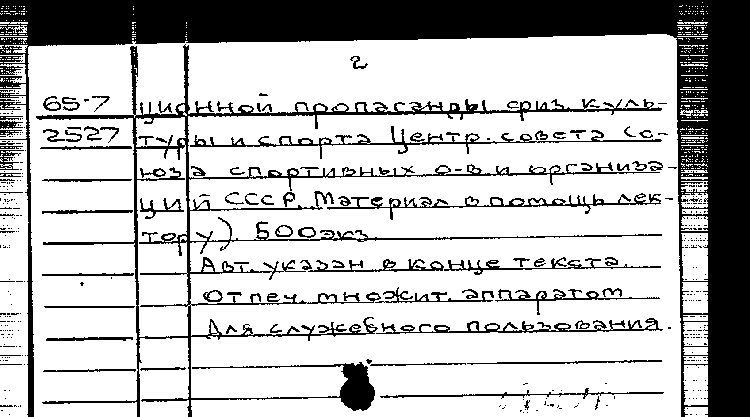 2
65-7 ционной пропаганды физ. куль-
2527 туры и спорта Центр. совета Со-
юза спортивных о-в и организа-
ций СССР. Материал в помощь лек-
тору). 500экз.
Авт. указан в конце текста.
Отпеч. множит. аппаратом.
Для служебного пользования.